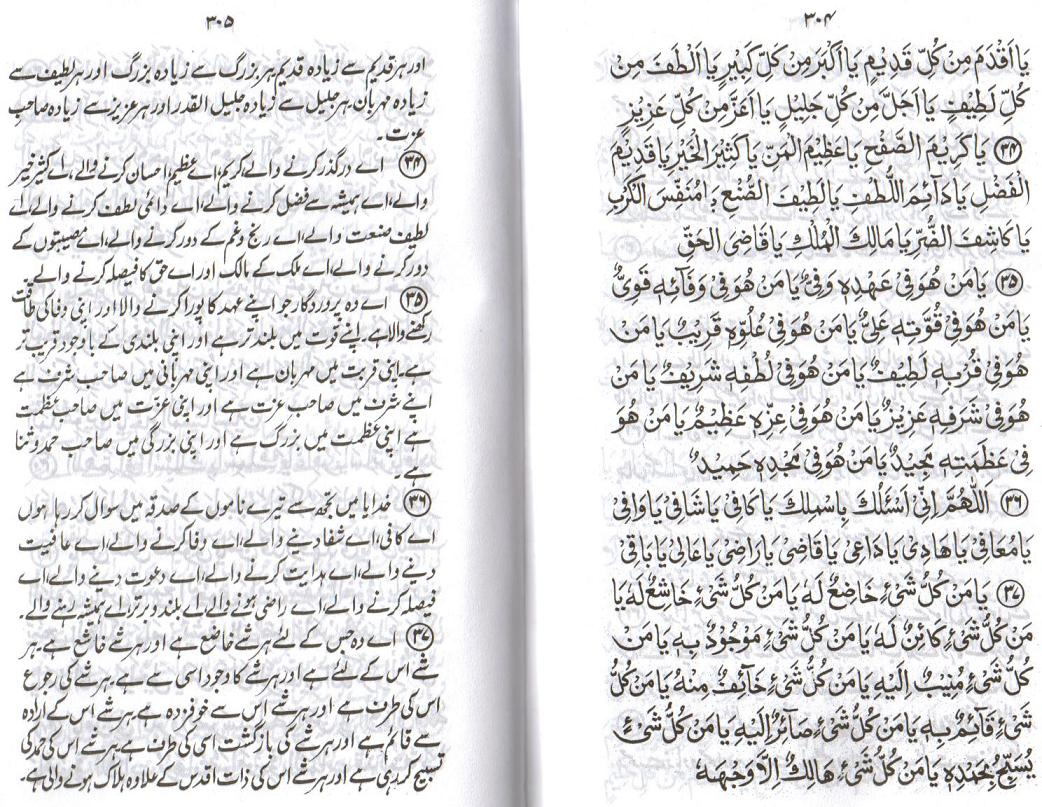 ۳۰۴
يَا اَقْدَمَ مِنْ كُلِّ قَدِيْمٍ يَا اَكْبَرَ مِنْ كُلِّ كَبِيْرٍ يَا اَلْطَفَ مِنْ
كُلِّ لَطِيْفٍ يَا اَجَلَّ مِنْ كُلِّ جَلِيْلٍ يَا اَعَزَّ مِنْ كُلِّ عَزِيْزٍ
۳۴ يَا كَرِيْمَ الصَّفْحِ يَا عَظِيْمَ الْمَنِّ يَا كَثِيْرَ الْخَيْرِ يَا قَدِيْمَ
الْفَضْلِ يَا دَآئِمَ اللُّطْفِ يَا لَطِيْفَ الصُّنْعِ يَا مُنَفِّسَ الْكَرْبِ
يَا كَاشِفَ الضُّرِّ يَا مَالِكَ الْمُلْكِ يَا قَاضِىَ الْحَقِّ
۳۵ يَا مَنْ هُوَ فِىْ عَهْدِهٖ وَفِىٌّ يَا مَنْ هُوَ فِىْ وَفَآئِهٖ قَوِىٌّ
يَا مَنْ هُوَ فِىْ قُوَّتِهٖ عَلِىٌّ يَا مَنْ هُوَ فِىْ عُلُوِّهٖ قَرِيْبٌ يَا مَنْ
هُوَ فِىْ قُرْبِهٖ لَطِيْفٌ يَا مَنْ هُوَ فِىْ لُطْفِهٖ شَرِيْفٌ يَا مَنْ
هُوَ فِىْ شَرَفِهٖ عَزِيْزٌ يَا مَنْ هُوَ فِىْ عِزِّهٖ عَظِيْمٌ يَا مَنْ هُوَ
فِىْ عَظَمَتِهٖ مَجِيْدٌ يَا مَنْ هُوَ فِىْ مَجْدِهٖ حَمِيْدٌ
۳۶ اَللّٰهُمَّ اِنِّىْ اَسْئَلُكَ بِاسْمِكَ يَا كَافِىْ يَا شَافِىْ يَا وَافِىْ
يَا مُعَافِىْ يَا هَادِىْ يَا دَاعِىْ يَا قَاضِىْ يَا رَاضِىْ يَا عَالِىْ يَا بَاقِىْ
۳۷ يَا مَنْ كُلُّ شَىْءٍ خَاضِعٌ لَهٗ يَا مَنْ كُلُّ شَىْءٍ خَاشِعٌ لَهٗ يَا
مَنْ كُلُّ شَىْءٍ كَائِنٌ لَهٗ يَا مَنْ كُلُّ شَىْءٍ مَوْجُوْدٌ بِهٖ يَا مَنْ
كُلُّ شَىْءٍ مُنِيْبٌ اِلَيْهِ يَا مَنْ كُلُّ شَىْءٍ خَآئِفٌ مِنْهُ يَا مَنْ كُلُّ
شَىْءٍ قَآئِمٌ بِهٖ يَا مَنْ كُلُّ شَىْءٍ صَآئِرٌ اِلَيْهِ يَا مَنْ كُلُّ شَىْءٍ
يُسَبِّحُ بِحَمْدِهٖ يَا مَنْ كُلُّ شَىْءٍ هَالِكٌ اِلَّا وَجْهَهٗ
۳۰۵
اور ہر قدیم سے زیادہ قدیم ہر بزرگ سے زیادہ بزرگ اور ہر لطیف سے
زیادہ مہربان، ہر جلیل سے زیادہ جلیل القدر اور ہر عزیز سے زیادہ صاحب
عزت۔
۳۴ اے درگذر کرنے والے کریم، اے عظیم احسان کرنے والے، اے کثیر خیر
والے، اے ہمیشہ سے فضل کرنے والے، اے دائمی لطف کرنے والے، اے
لطیف صنعت والے، اے رنج و غم کے دور کرنے والے، اے مصیبتوں کے
دور کرنے والے، اے ملک کے مالک اور اے حق کا فیصلہ کرنے والے۔
۳۵ اے وہ پروردگار جو اپنے عہد کا پورا کرنے والا اور اپنی وفا کی طاقت
رکھنے والا ہے۔ اپنے قوت میں بلند تر ہے اور اپنی بلندی کے باوجود قریب تر
ہے۔ اپنی قربت میں مہربان ہے اور اپنی مہربانی میں صاحب شرف ہے
اپنے شرف میں صاحب عزت ہے اور اپنی عزّت میں صاحب عظمت
ہے اپنی عظمت میں بزرگ ہے اور اپنی بزرگی میں صاحب حمد و ثنا
ہے۔
۳۶ خدایا میں تجھ سے تیرے ناموں کے صدقہ میں سوال کر رہا ہوں
اے کافی، اے شفا دینے والے، اے وفا کرنے والے، اے عافیت
دینے والے، اے ہدایت کرنے والے، اے دعوت دینے والے، اے
فیصلہ کرنے والے، اے راضی ہونے والے، اے بلند و برتر، اے ہمیشہ رہنے والے۔
۳۷ اے وہ جس کے لئے ہر شے خاضع ہے اور ہر شے خاشع ہے۔ ہر
شے اس کے لئے ہے اور ہر شے کا وجود اسی سے ہے، ہر شے کی رجوع
اس کی طرف ہے اور ہر شے اس سے خوفزدہ ہے، ہر شے اس کے ارادہ
سے قائم ہے اور ہر شے کی بازگشت اسی کی طرف ہے، ہر شے اس کی حمد کی
تسبیح کر رہی ہے اور ہر شے اس کی ذات اقدس کے علاوہ ہلاک ہونے والی ہے۔